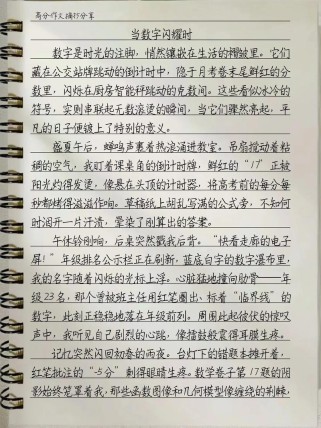 高分作文摘抄分享
当数字闪耀时
数字是时光的注脚，悄然镶嵌在生活的褶皱里。它们
藏在公交站牌跳动的倒计时中，隐于月考卷末尾鲜红的分
数里，闪烁在厨房智能秤跳动的克数间。这些看似冰冷的
符号，实则串联起无数滚烫的瞬间，当它们骤然亮起，平
凡的日子便镀上了特别的意义。
盛夏午后，蝉鸣声裹着热浪涌进教室。吊扇搅动着粘
稠的空气，我盯着课桌角的倒计时牌，鲜红的“17”正被
阳光灼得发烫，像悬在头顶的计时器，将高考前的每分每
秒都烤得滋滋作响。草稿纸上胡乱写满的公式旁，不知何
时洇开一片汗渍，晕染了刚算出的答案。
午休铃刚响，后桌突然戳我后背。“快看走廊的电子
屏！”年级排名公示栏正在刷新，蓝底白字的数字瀑布里，
我的名字随着闪烁的光标上浮。心脏猛地撞向肋骨——年
级23名，那个曾被班主任用红笔圈出、标着“临界线”的
数字，此刻正稳稳地落在年级前列。周围此起彼伏的惊叹
声中，我听见自己剧烈的心跳，像擂鼓般震得耳膜生疼。
记忆突然闪回初春的雨夜。台灯下的错题本摊开着，
红笔批注的“-5分”刺得眼睛生疼。数学卷子第17题的阴
影始终笼罩着我，那些函数图像和几何模型像缠绕的荆棘，